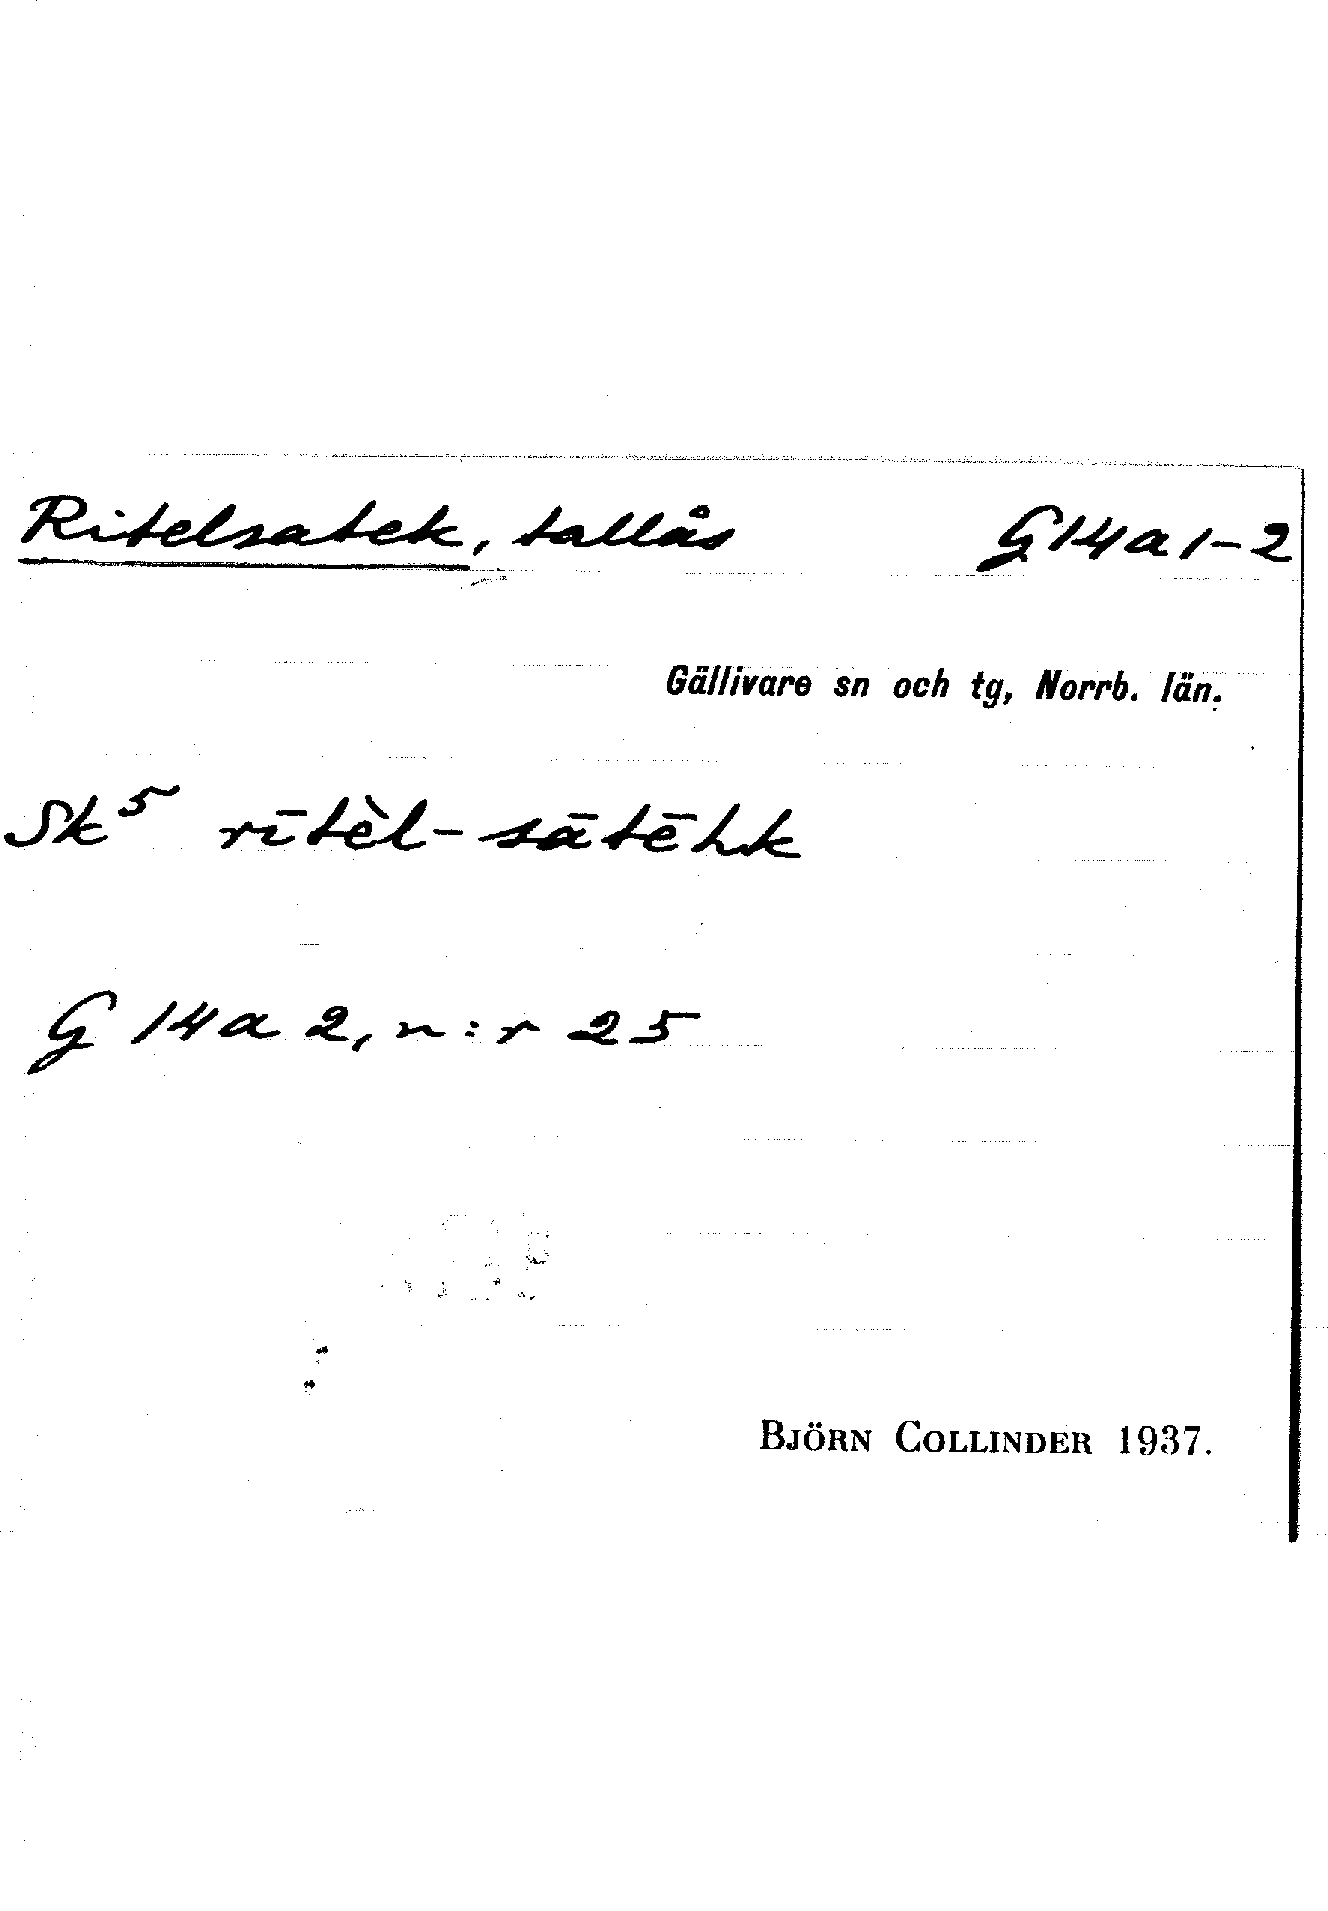 Ritelsatek, tallås G14a1-2
Gällivare sn och tg, Norrb. län.
Sk⁵ rītèl-sātēhk
G 14a 2, n:r 25
BJÖRN COLLINDER 1937.